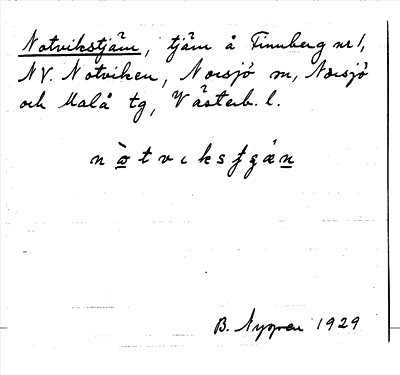 Notvikstjärn, tjärn å Finnberg nr 1,
NV. Notviken, Norsjö sn, Norsjö
och Malå tg, Västerb. l.
nòtviksʃgäṉ
B. Nygren 1929